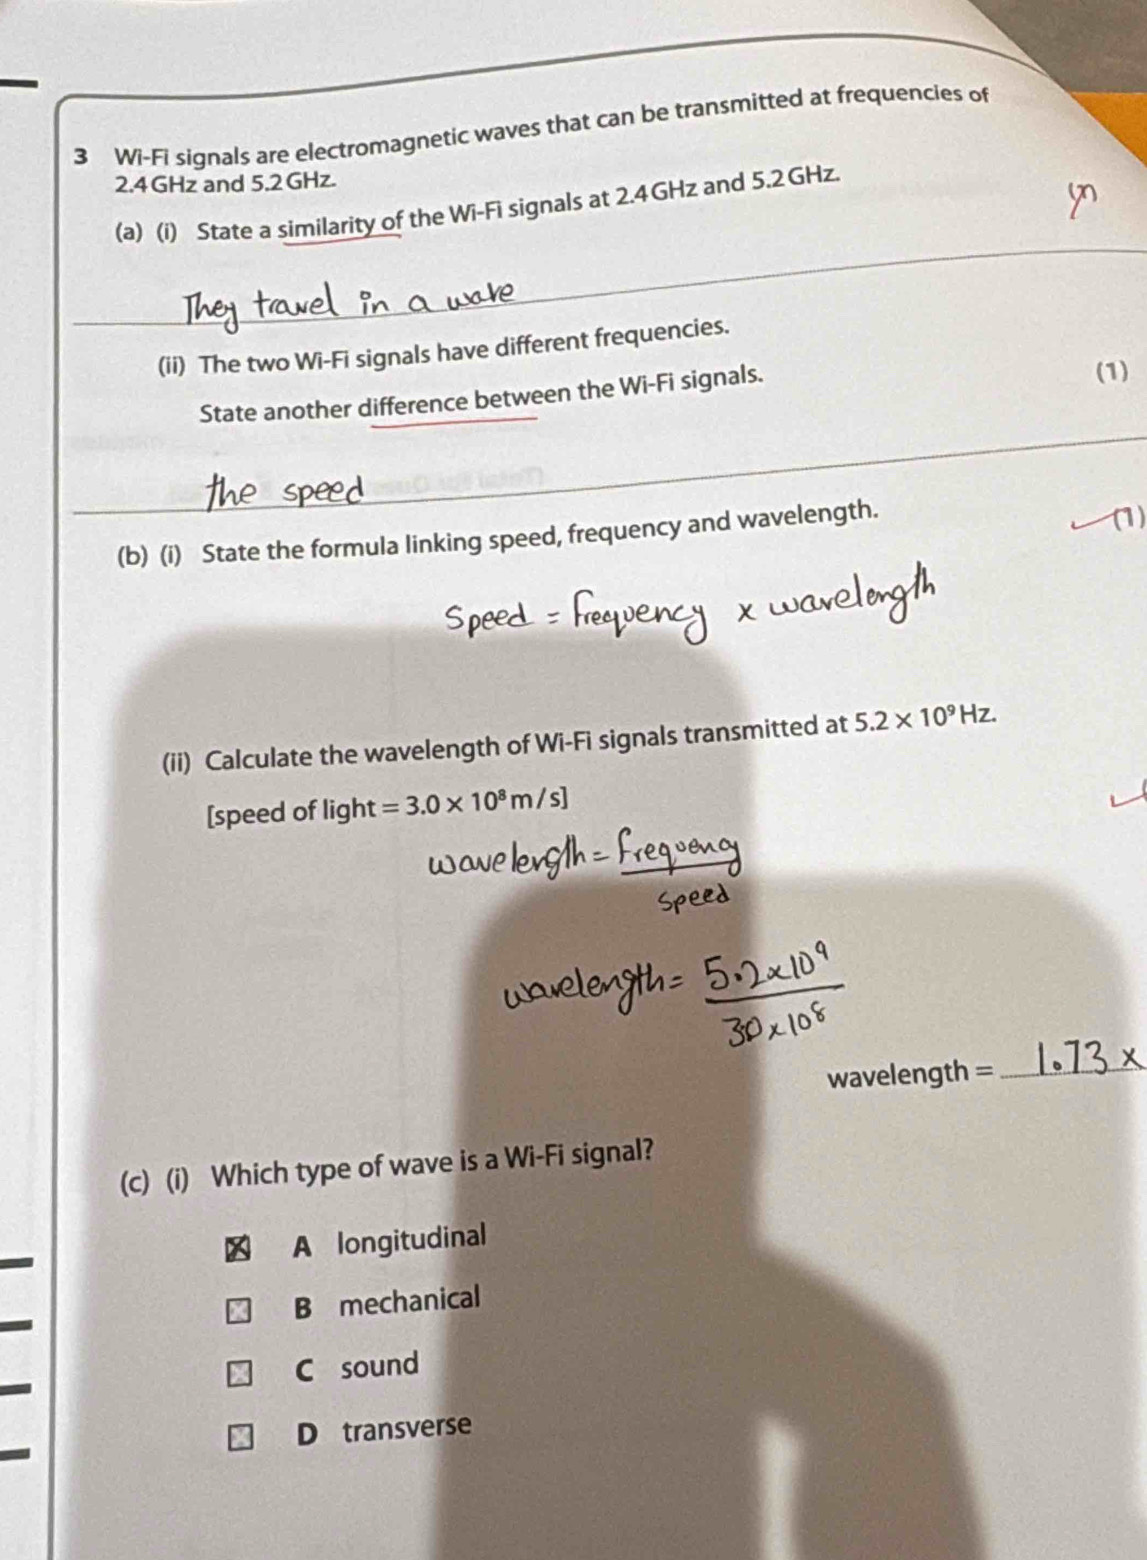 3 Wi-Fi signals are electromagnetic waves that can be transmitted at frequencies of
2.4 GHz and 5.2 GHz.
(a) (i) State a similarity of the Wi-Fi signals at 2.4 GHz and 5.2 GHz.
They travel in a wave
(ii) The two Wi-Fi signals have different frequencies.
(1)
State another difference between the Wi-Fi signals.
the speed
(b) (i) State the formula linking speed, frequency and wavelength.
(1)
Speed = frequency x wavelength
(ii) Calculate the wavelength of Wi-Fi signals transmitted at 5.2 × 10⁹ Hz.
[speed of light = 3.0 × 10⁸ m/s]
wavelength = frequency
speed
wavelength = 5.2 x 10⁹
30 x 10⁸
wavelength = 1.73 x
(c) (i) Which type of wave is a Wi-Fi signal?
A longitudinal
B mechanical
C sound
D transverse